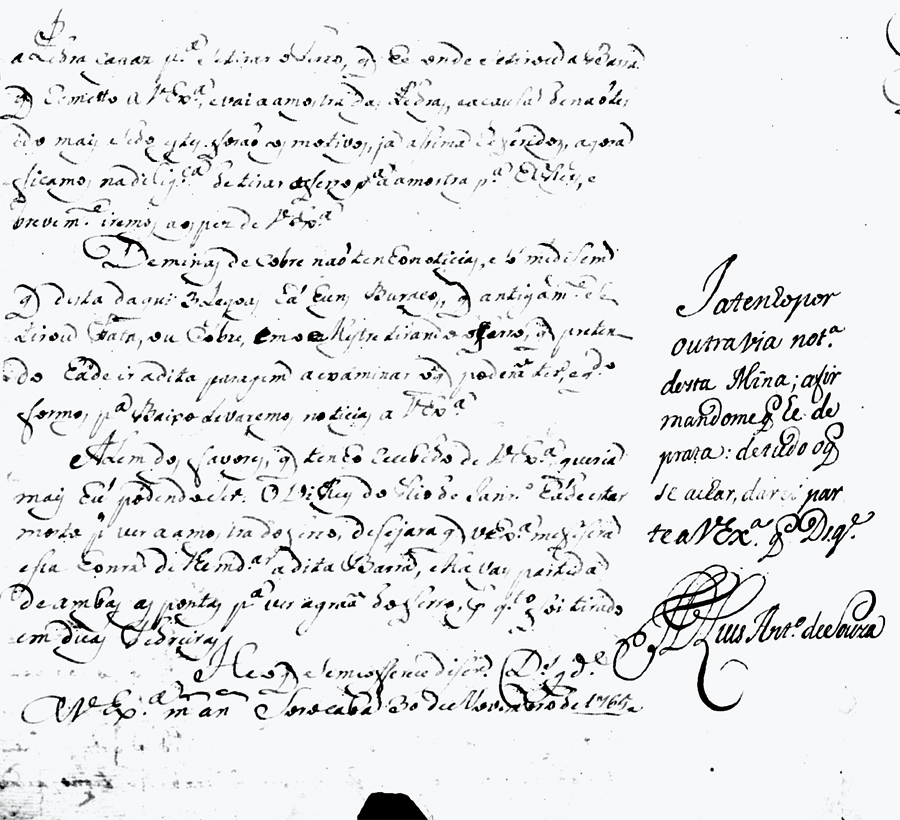 a Pedra cavar p.ª se tirar o ferro, q̃ he onde se tirou a Barra
q̃ remetto a V Ex.ª, e vai a amostra da Pedra, e a cauſa de não ter
ido mais sedo estes forão os motivos, já aſsima referidos, agora
ficamos na delig.ca de tirar o ferro p.ª a amostra p.ª e
brevem.e iremos aos pez de V Ex.ª
De minas de Cobre não tenho noticias, e só me diſserão
q̃ desta daqui 3 Legoas ha huns Buracos, q̃ antigam.e se
tirou Prata, ou Cobre, e o Mestre tirando o ferro, q̃ preten
do hade ir a dita paragem a examinar o q̃ poderá ter, e q.do
formos p.ª Baixo levaremos noticias a V Ex.ª
Alem dos favores, q̃ tenho recebido de V Ex.ª, queria
mais hũ podendo ser. O V. Rey do Rio de Janr.o hade estar
morto p.r ver a amostra do ferro, desejara q̃ V Ex.ª me fizera
esta honra de Remd.ar a dita Barra, e ella vay partida
de ambas as pontas p.ª ver a grã do ferro, q̃ foi tirado
em duas Pedreiras
He o q̃ se me offerece dizer. D.s g.de
A V Ex.ª m. an Sorocaba 30 de Novembro de 1765
Ja tenho por
outra via not.ª
desta Mina; afir
mandome q̃ he de
prata: de tudo o q̃
se achar, darei par
te a V Ex.ª q̃ D.s g.e
Luis Ant.o de Souza